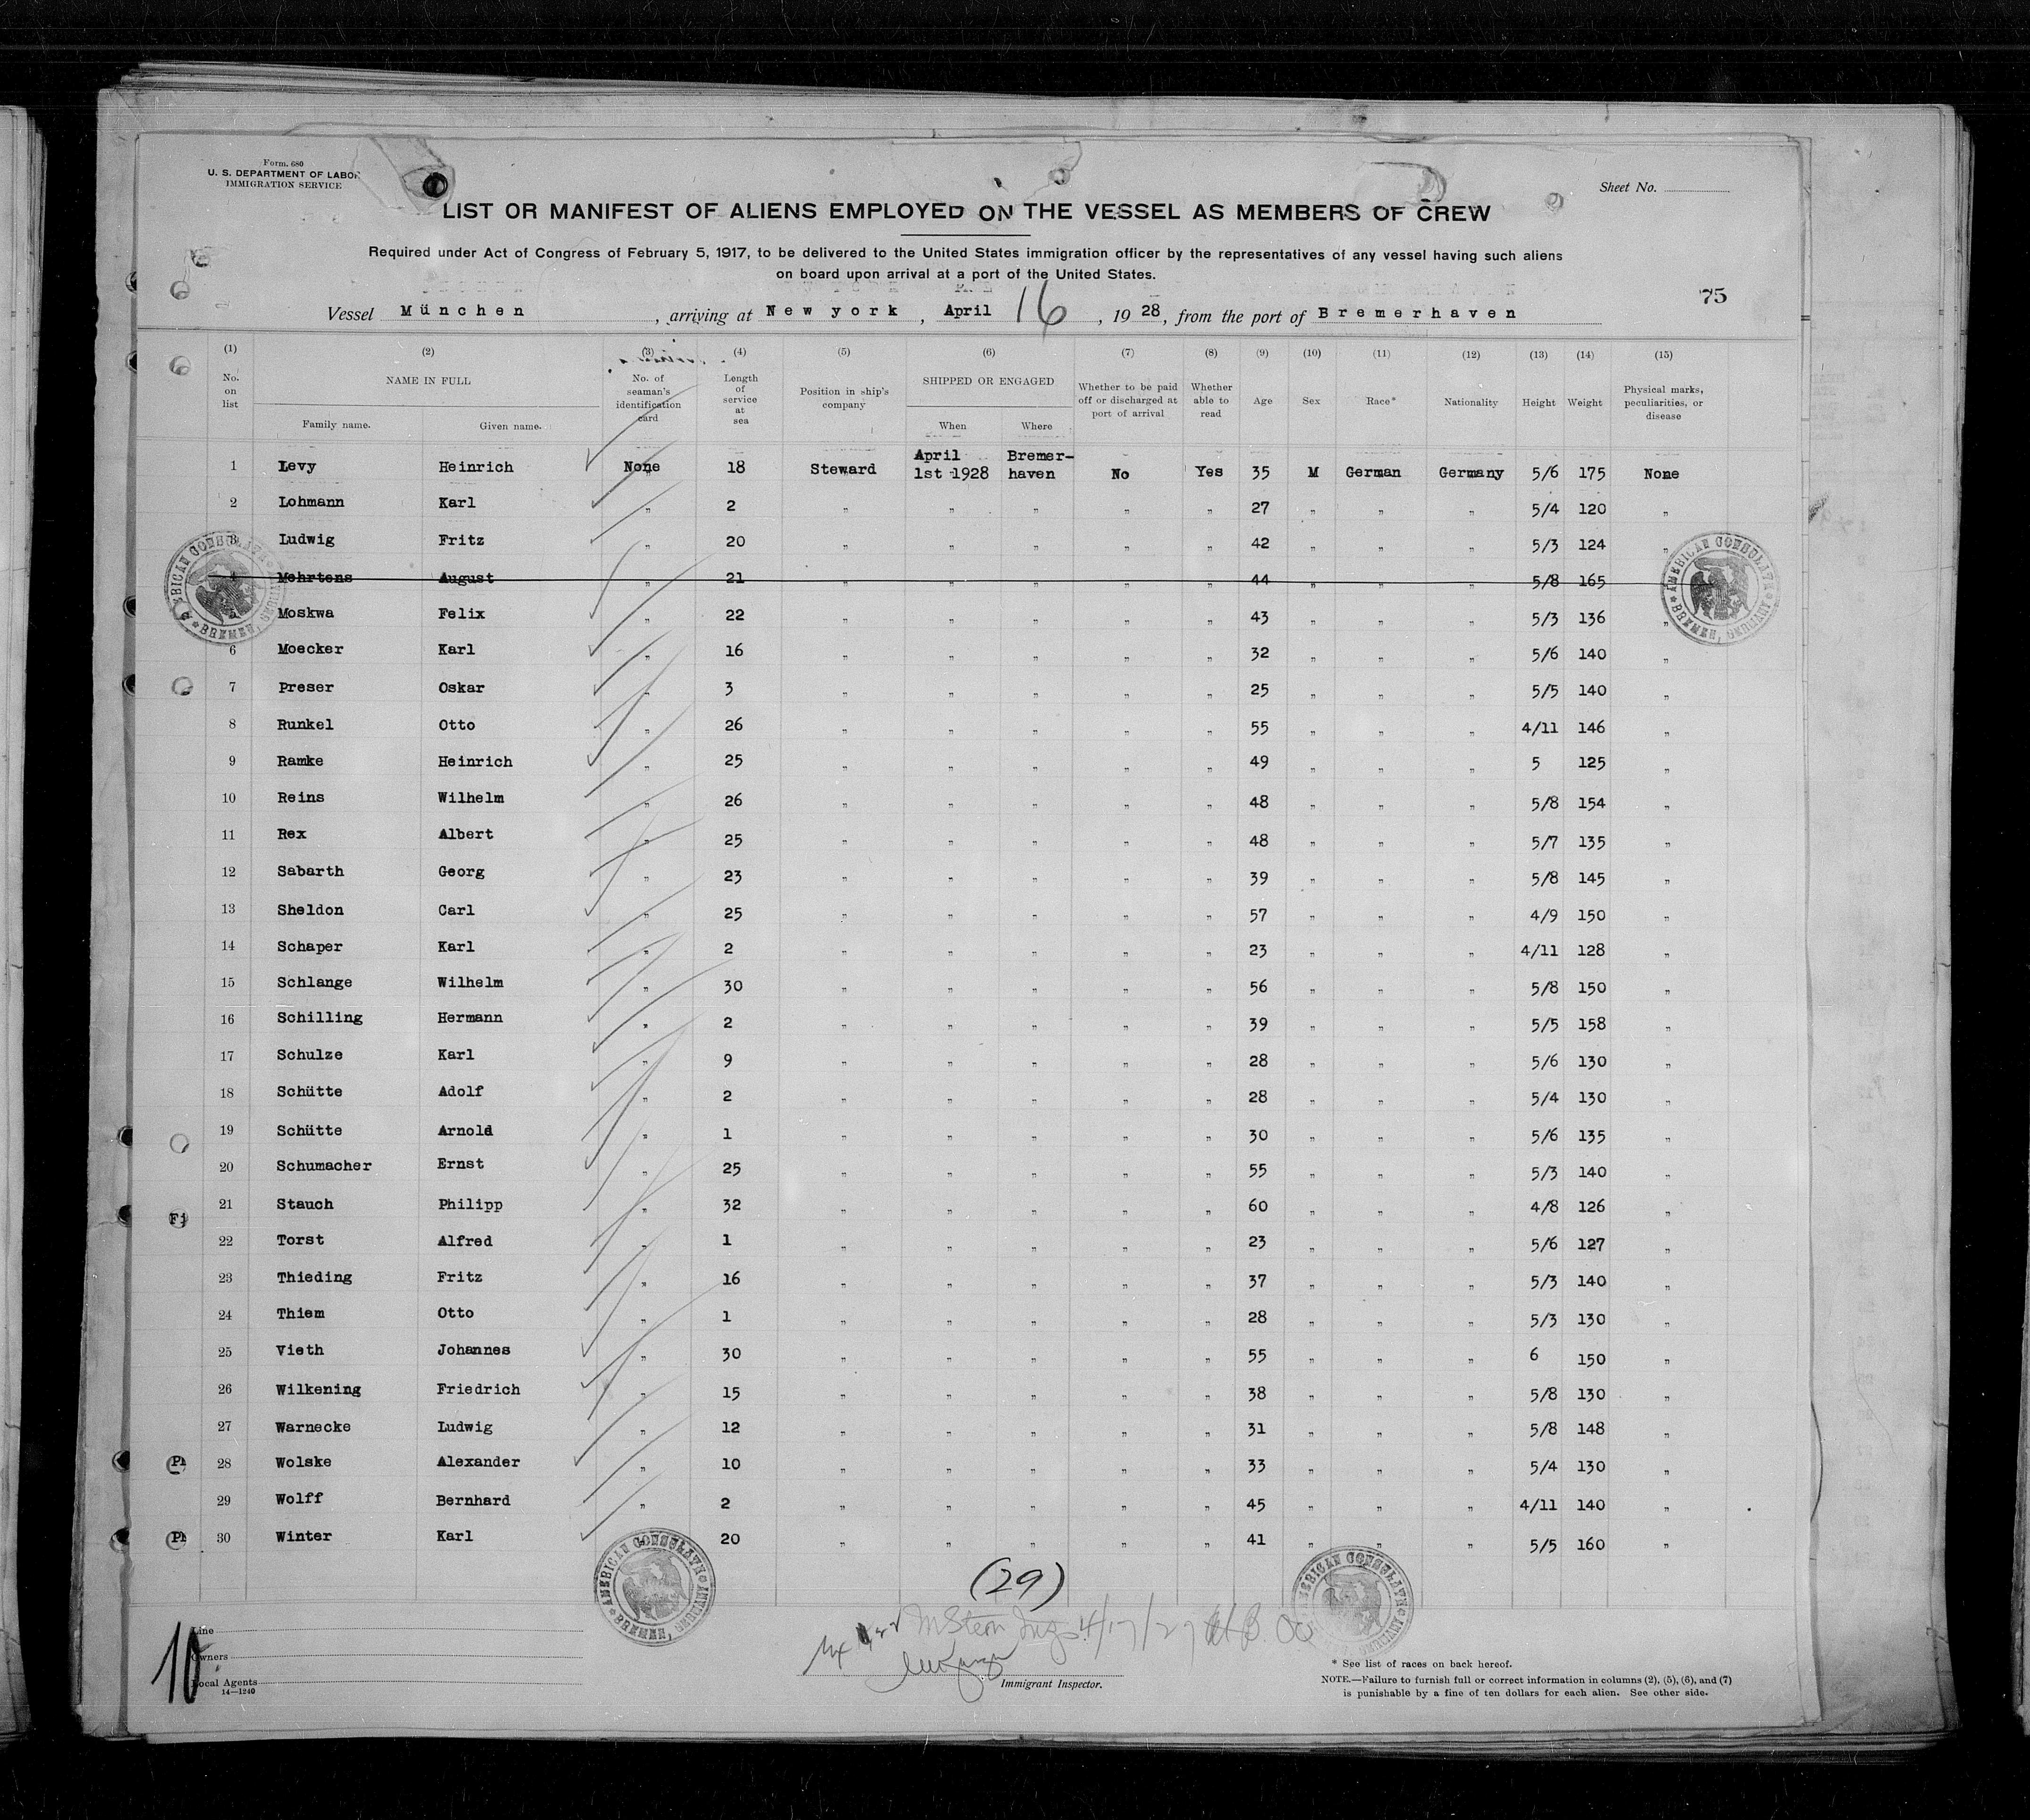 Form. 680
U. S. DEPARTMENT OF LABOR
IMMIGRATION SERVICE
Sheet No.
LIST OR MANIFEST OF ALIENS EMPLOYED ON THE VESSEL AS MEMBERS OF CREW
Required under Act of Congress of February 5, 1917, to be delivered to the United States immigration officer by the representatives of any vessel having such aliens
on board upon arrival at a port of the United States.
75
Vessel München, arriving at New york, April 16, 1928, from the port of Bremerhaven
(1) (2) (3) (4) (5) (6) (7) (8) (9) (10) (11) (12) (13) (14) (15)
No. on list NAME IN FULL Family name. Given name. No. of seaman's identification card Length of service at sea Position in ship's company SHIPPED OR ENGAGED When Where Whether to be paid off or discharged at port of arrival Whether able to read Age Sex Race* Nationality Height Weight Physical marks, peculiarities, or disease
1 Levy Heinrich None 18 Steward April 1st 1928 Bremer-haven No Yes 35 M German Germany 5/6 175 None
2 Lohmann Karl " 2 " " " " " 27 " " " 5/4 120 "
3 Ludwig Fritz " 20 " " " " " 42 " " " 5/3 124 "
4 Mehrtens August " 21 " " " " " 44 " " " 5/8 165 "
5 Moskwa Felix " 22 " " " " " 43 " " " 5/3 136 "
6 Moecker Karl " 16 " " " " " 32 " " " 5/6 140 "
7 Preser Oskar " 3 " " " " " 25 " " " 5/5 140 "
8 Runkel Otto " 26 " " " " " 55 " " " 4/11 146 "
9 Ramke Heinrich " 25 " " " " " 49 " " " 5 125 "
10 Reins Wilhelm " 26 " " " " " 48 " " " 5/8 154 "
11 Rex Albert " 25 " " " " " 48 " " " 5/7 135 "
12 Sabarth Georg " 23 " " " " " 39 " " " 5/8 145 "
13 Sheldon Carl " 25 " " " " " 57 " " " 4/9 150 "
14 Schaper Karl " 2 " " " " " 23 " " " 4/11 128 "
15 Schlange Wilhelm " 30 " " " " " 56 " " " 5/8 150 "
16 Schilling Hermann " 2 " " " " " 39 " " " 5/5 158 "
17 Schulze Karl " 9 " " " " " 28 " " " 5/6 130 "
18 Schütte Adolf " 2 " " " " " 28 " " " 5/4 130 "
19 Schütte Arnold " 1 " " " " " 30 " " " 5/6 135 "
20 Schumacher Ernst " 25 " " " " " 55 " " " 5/3 140 "
21 Stauch Philipp " 32 " " " " " 60 " " " 4/8 126 "
22 Torst Alfred " 1 " " " " " 23 " " " 5/6 127 "
23 Thieding Fritz " 16 " " " " " 37 " " " 5/3 140 "
24 Thiem Otto " 1 " " " " " 28 " " " 5/3 130 "
25 Vieth Johannes " 30 " " " " " 55 " " " 6 150 "
26 Wilkening Friedrich " 15 " " " " " 38 " " " 5/8 130 "
27 Warnecke Ludwig " 12 " " " " " 31 " " " 5/8 148 "
28 Wolske Alexander " 10 " " " " " 33 " " " 5/4 130 "
29 Wolff Bernhard " 2 " " " " " 45 " " " 4/11 140 "
30 Winter Karl " 20 " " " " " 41 " " " 5/5 160 "
AMERICAN CONSULATE BREMEN, GERMANY
(29)
10
Line
Owners
Local Agents
14—1240
Immigrant Inspector.
* See list of races on back hereof.
NOTE.—Failure to furnish full or correct information in columns (2), (5), (6), and (7)
is punishable by a fine of ten dollars for each alien. See other side.